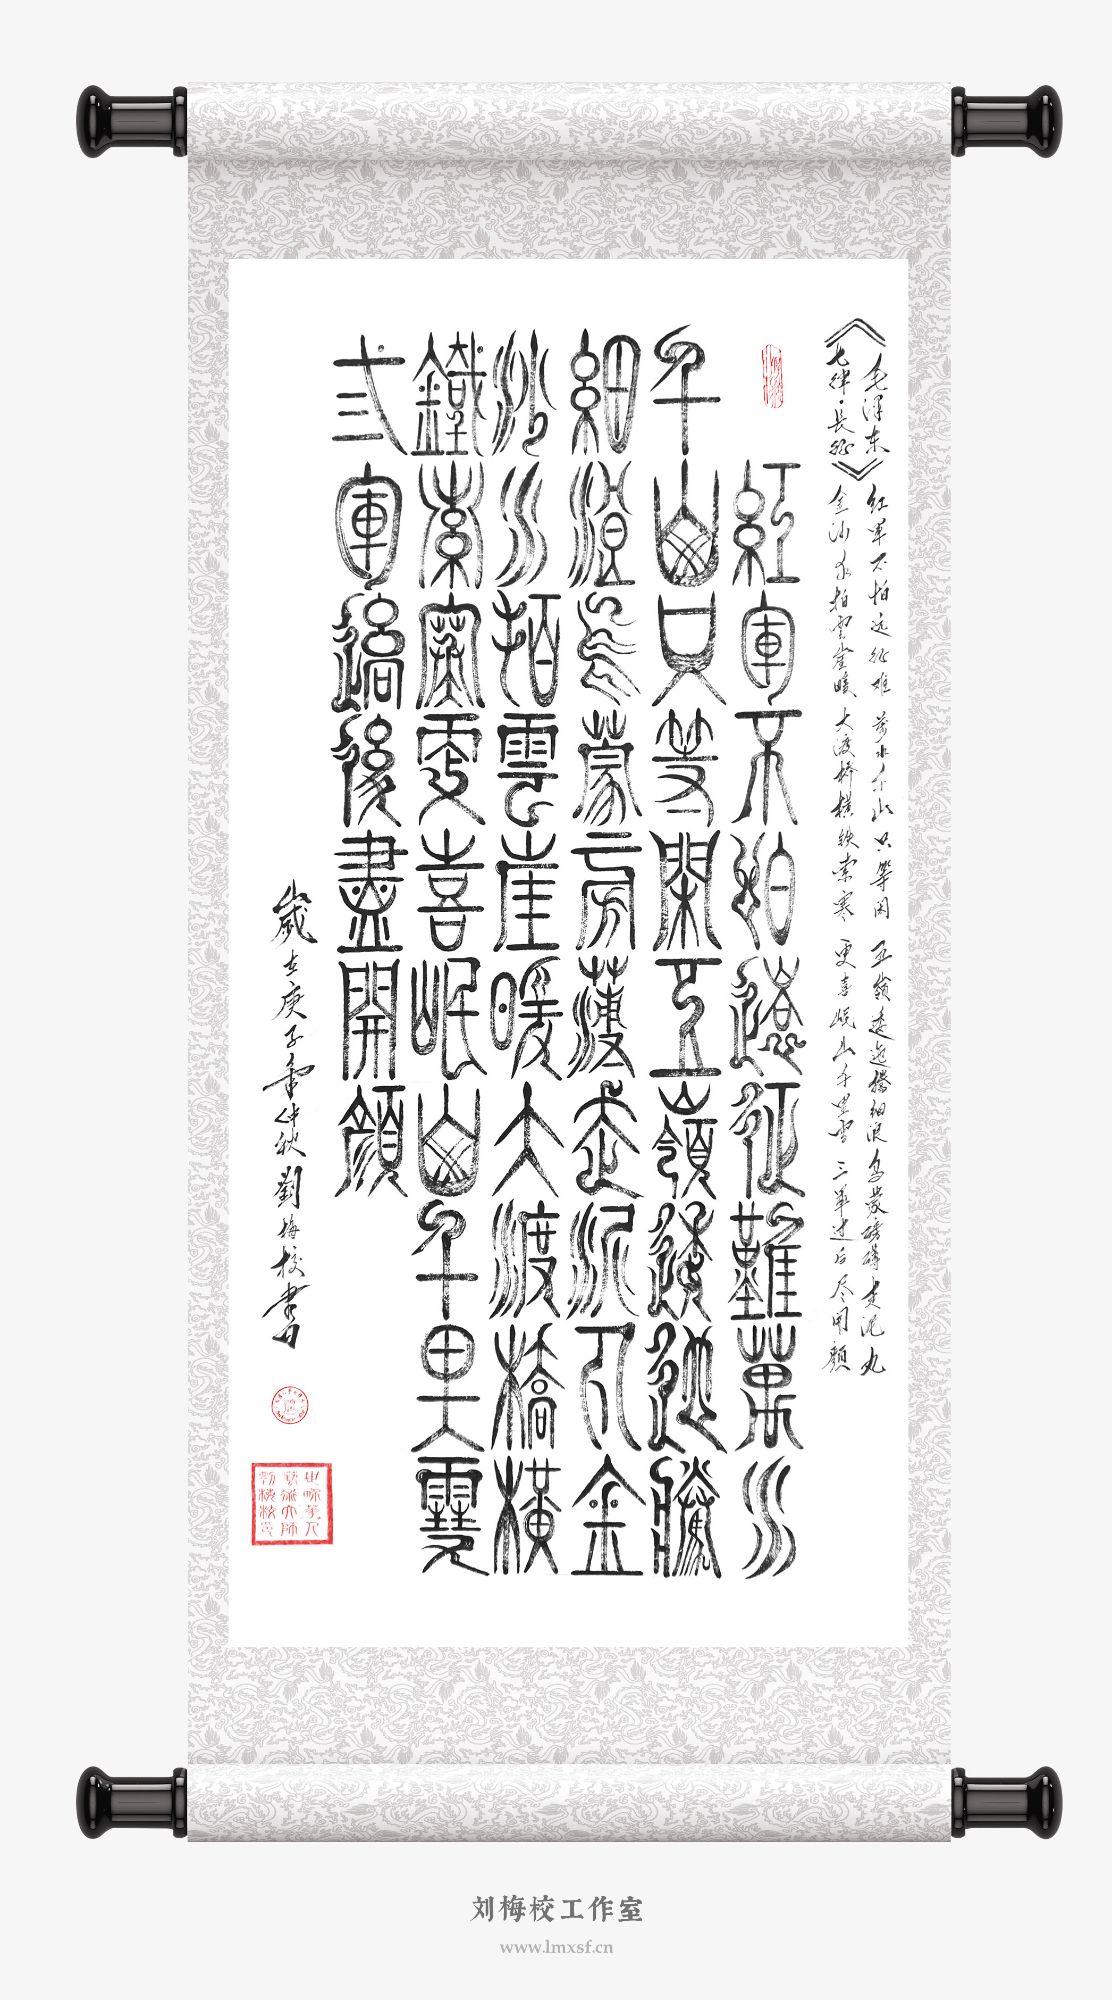 毛泽东 红军不怕远征难 万水千山只等闲 五嶺逶迤腾细浪 乌蒙磅礴走泥丸
《七律·長征》 金沙水拍雲崖暖 大渡桥横铁索寒 更喜岷山千里雪 三军过后尽开颜
紅軍不怕遠征難萬水
千山只等閑五嶺逶迤騰
細浪烏蒙磅礴走泥丸金
沙水拍雲崖暖大渡橋橫
鐵索寒更喜岷山千里雪
弎軍過後盡開顏
歲在庚子年仲秋劉梅校書
世界華人
藝術大師
劉梅校印
刘梅校工作室
www.lmxsf.cn